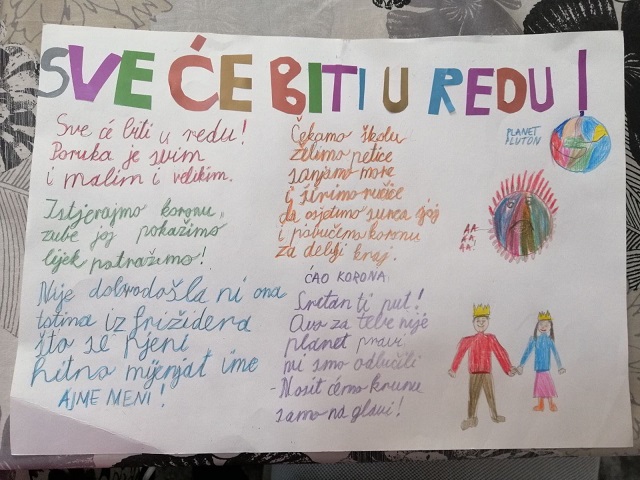 SVE ĆE BITI U REDU!
Sve će biti u redu!
Poruka je svim
i malim i velikim.
Istjerajmo koronu,
zube joj pokažimo
lijek potražimo!
Nije dobrodošla ni ona
istina iz frižidera
što se pjeni
hitno mijenjat ime
AJME MENI!
Čekamo školu
želimo petice
sanjamo more
i širimo ručice
da osjetimo sunca sjaj
i
koronu
za delji kraj.
ĆAO KORONA
Sretan ti put!
Ova za tebe nije
planet pravi
mi smo odlučili
-Nosit ćemo krunu
samo na glavi!
PLANET
PLUTON
AA
AA
AA!